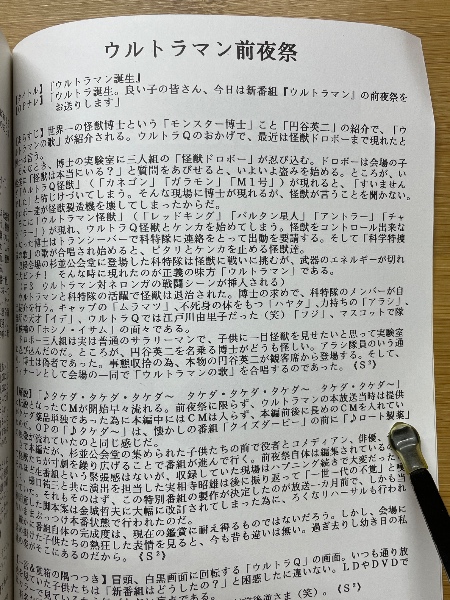 ウルトラマン前夜祭
『ウルトラマン誕生』
「ウルトラ誕生。良い子の皆さん、今日は新番組『ウルトラマン』の前夜祭を
お送りします」
世界一の怪獣博士という「モンスター博士」こと「円谷英二」の紹介で、「ウ
の歌」が紹介される。ウルトラQのおかげで、最近は怪獣ドロボーまで現れたと
博士の実験室に三人組の「怪獣ドロボー」が忍び込む。ドロボーは会場の子
怪獣は本当にいる？」と質問をあびせると、いよいよ盗みを始める。ところが、い
ルトラQ怪獣」（「カネゴン」「ガラモン」「M1号」）が現れると、「すいません
と命じけづいてしまう。そんな現場に博士が現れるが、怪獣が言うことを聞かない。
ボー達が怪獣製造機を壊してしまったからだ。
「ウルトラマン怪獣」（「レッドキング」「バルタン星人」「アントラー」「チャ
」）が現れ、ウルトラQ怪獣とケンカを始めてしまう。怪獣をコントロール出来な
った博士はトランシーバーで科特隊に連絡をとって出動を要請する。そして「科学特捜
の歌」の歌が合唱され始めると、ピタリとケンカを止める怪獣達。
杉並公会堂に登場した科特隊は怪獣に戦いに挑むが、武器のエネルギーが切れ
。そんな時に現れたのが正義の味方「ウルトラマン」である。
ウルトラマン対ネロンガの戦闘シーンが挿入される）
ルトラマンと科特隊の活躍で怪獣は退治された。博士の求めで、科特隊のメンバーが自
を行う。キャップの「ムラマツ」、不死身の体をもつ「ハヤタ」、力持ちの「アラシ」、
才「イデ」、ウルトラQでは江戸川由里子だった（笑）「フジ」、マスコットで隊
の「ホシノ・イサム」の面々である。
ドロボー三人組は実は普通のサラリーマンで、子供に一目怪獣を見せたいと思って実験室
込んだのだ。ところが、円谷英二を名乗る博士がどうも怪しい。アラシ隊員のいう通
士は偽者であった。事態収拾の為、本物の円谷英二が観客席から登場する。そして、
ナーンとして会場の一同で「ウルトラマンの歌」を合唱するのであった。
「♪タケダ・タケダ・タケダー　タケダ・タケダ・タケダー」
となったCMが開始早々流れる。前夜祭に限らず、ウルトラマンの本放送当時は提供
薬品単独であった為に本編中にはCMは入らず、本編前後に長めのCMを入れてい
OPの「♪タケダ～」は、懐かしの番組「クイズダービー」の前に「♪ロート製薬」
が流れていたのと同じ感じだ。
本編だが、杉並公会堂の集められた子供たちの前で役者とコメディアン、俳優、
達が寸劇を繰り広げることで番組が進んで行く。前夜祭自体は編集されているの
生番組という緊張感はないが、収録していた現場はハプニング続きで大変だった
樋口祐三と共に演出を担当した実相寺昭雄は後に振り返って「一世一代の不覚」と
いた。それもそのはず、この特別番組の製作が決定したのが放送一カ月前で、しかも当
た脚本案は金城哲夫に大幅に改訂されてしまった為に、ろくなリハーサルも行われ
まぶっつけ本番状態で行われたのだ。
に番組自体の完成度は、現在の鑑賞に耐え得るものではないだろう。しかし、会場に
けた子供たちの熱狂した表情を見ると、今も昔も違いは無い。過ぎ去りし幼き日の私
がそこにあるのだから。《S²》
重箱の隅つつき】冒頭、白黒画面に回転する「ウルトラQ」の画面。いつも通り放
見ていた子供たちは「新番組はどうしたの？」と困惑したに違いない。LDやDVDで